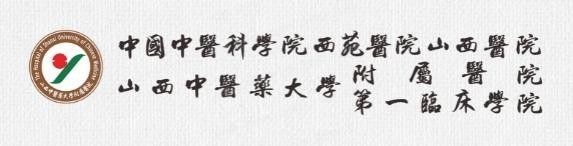 The Hospital of Shanxi University of Chinese Medicine
山西中醫藥大學附屬醫院
中國中醫科學院西苑醫院山西醫院
山西中醫藥大學附屬醫院
第一臨床學院